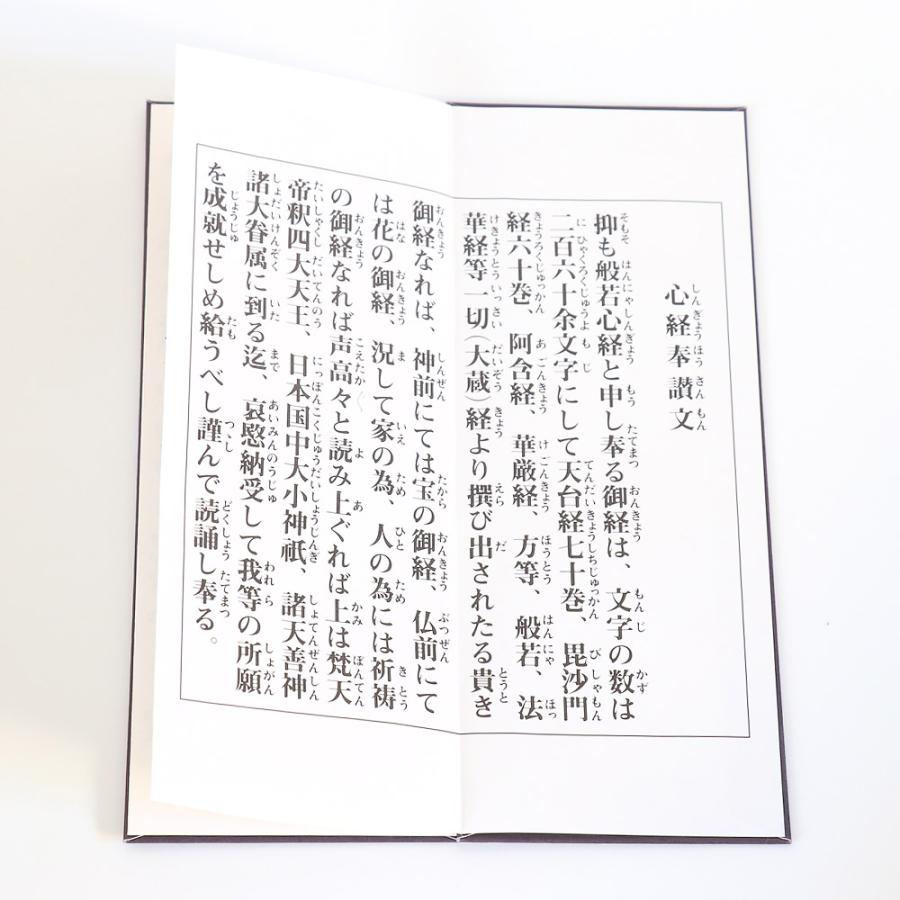 心経奉讃文
抑も般若心経と申し奉る御経は、文字の数は
二百六十余文字にして天台経七十巻、毘沙門
経六十巻、阿含経、華厳経、方等、般若、法
華経等一切(大蔵)経より撰び出されたる貴き
御経なれば、神前にては宝の御経、仏前にて
は花の御経、況して家の為、人の為には祈祷
の御経なれば声高々と読み上ぐれば上は梵天
帝釈四大天王、日本国中大小神祇、諸天善神
諸大眷属に到る迄、哀愍納受して我等の所願
を成就せしめ給うべし謹んで読誦し奉る。